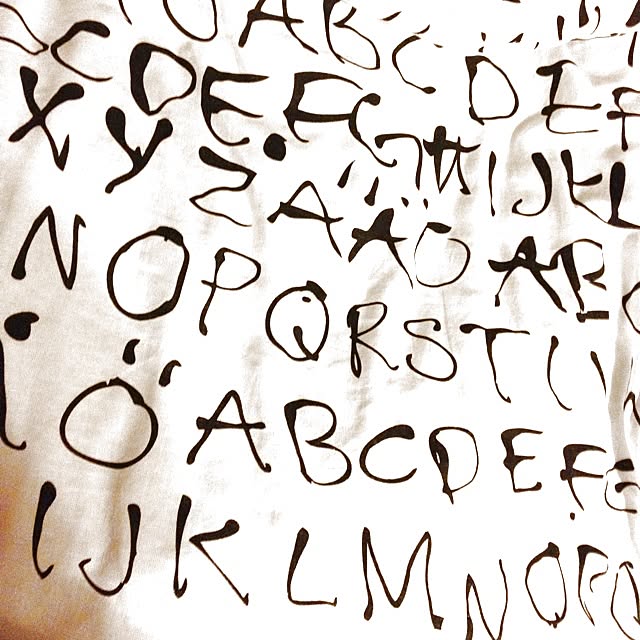 Ö A B C
C D E F G H I J K L
D E F
X Y Z Å Ä Ö A B
N O P Q R S T U
Ö A B C D E F G
I J K L M N O P Q